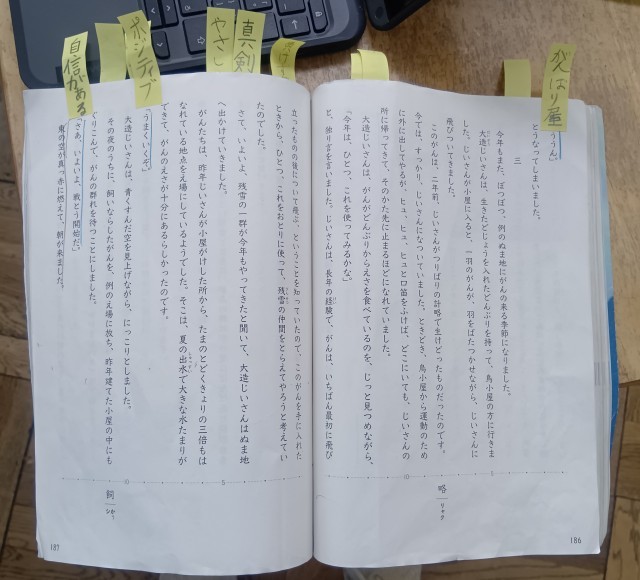 がんばり屋
真剣
やさし
ポジティブ
自信がある
ううん。」
とうなってしまいました。
三
今年もまた、ぼつぼつ、例のぬま地にがんの来る季節になりました。
大造じいさんは、生きたどじょうを入れたどんぶりを持って、鳥小屋の方に行きま
した。じいさんが小屋に入ると、一羽のがんが、羽をばたつかせながら、じいさんに
飛びついてきました。
このがんは、二年前、じいさんがつりばりの計略で生けどったものだったのです。
今では、すっかり、じいさんになついていました。ときどき、鳥小屋から運動のため
に外に出してやるが、ヒュ、ヒュ、ヒュと口笛をふけば、どこにいても、じいさんの
所に帰ってきて、そのかた先に止まるほどになれていました。
大造じいさんは、がんがどんぶりからえさを食べているのを、じっと見つめながら、
「今年は、ひとつ、これを使ってみるかな。」
と、独り言を言いました。じいさんは、長年の経験で、がんは、いちばん最初に飛び
略 リャク
186
立ったものの後について飛ぶ、ということを知っていたので、このがんを手に入れた
ときから、ひとつ、これをおとりに使って、残雪の仲間をとらえてやろうと考えてい
たのでした。
さて、いよいよ、残雪の一群が今年もやってきたと聞いて、大造じいさんはぬま地
へ出かけていきました。
がんたちは、昨年じいさんが小屋がけした所から、たまのとどくきょりの三倍もは
なれている地点をえ場にしているようでした。そこは、夏の出水で大きな水たまりが
できて、がんのえさが十分にあるらしかったのです。
「うまくいくぞ。」
大造じいさんは、青くすんだ空を見上げながら、にっこりとしました。
その夜のうちに、飼いならしたがんを、例のえ場に放ち、昨年建てた小屋の中にも
ぐりこんで、がんの群れを待つことにしました。
「さあ、いよいよ、戦とう開始だ。」
東の空が真っ赤に燃えて、朝が来ました。
5
飼 か・う
187